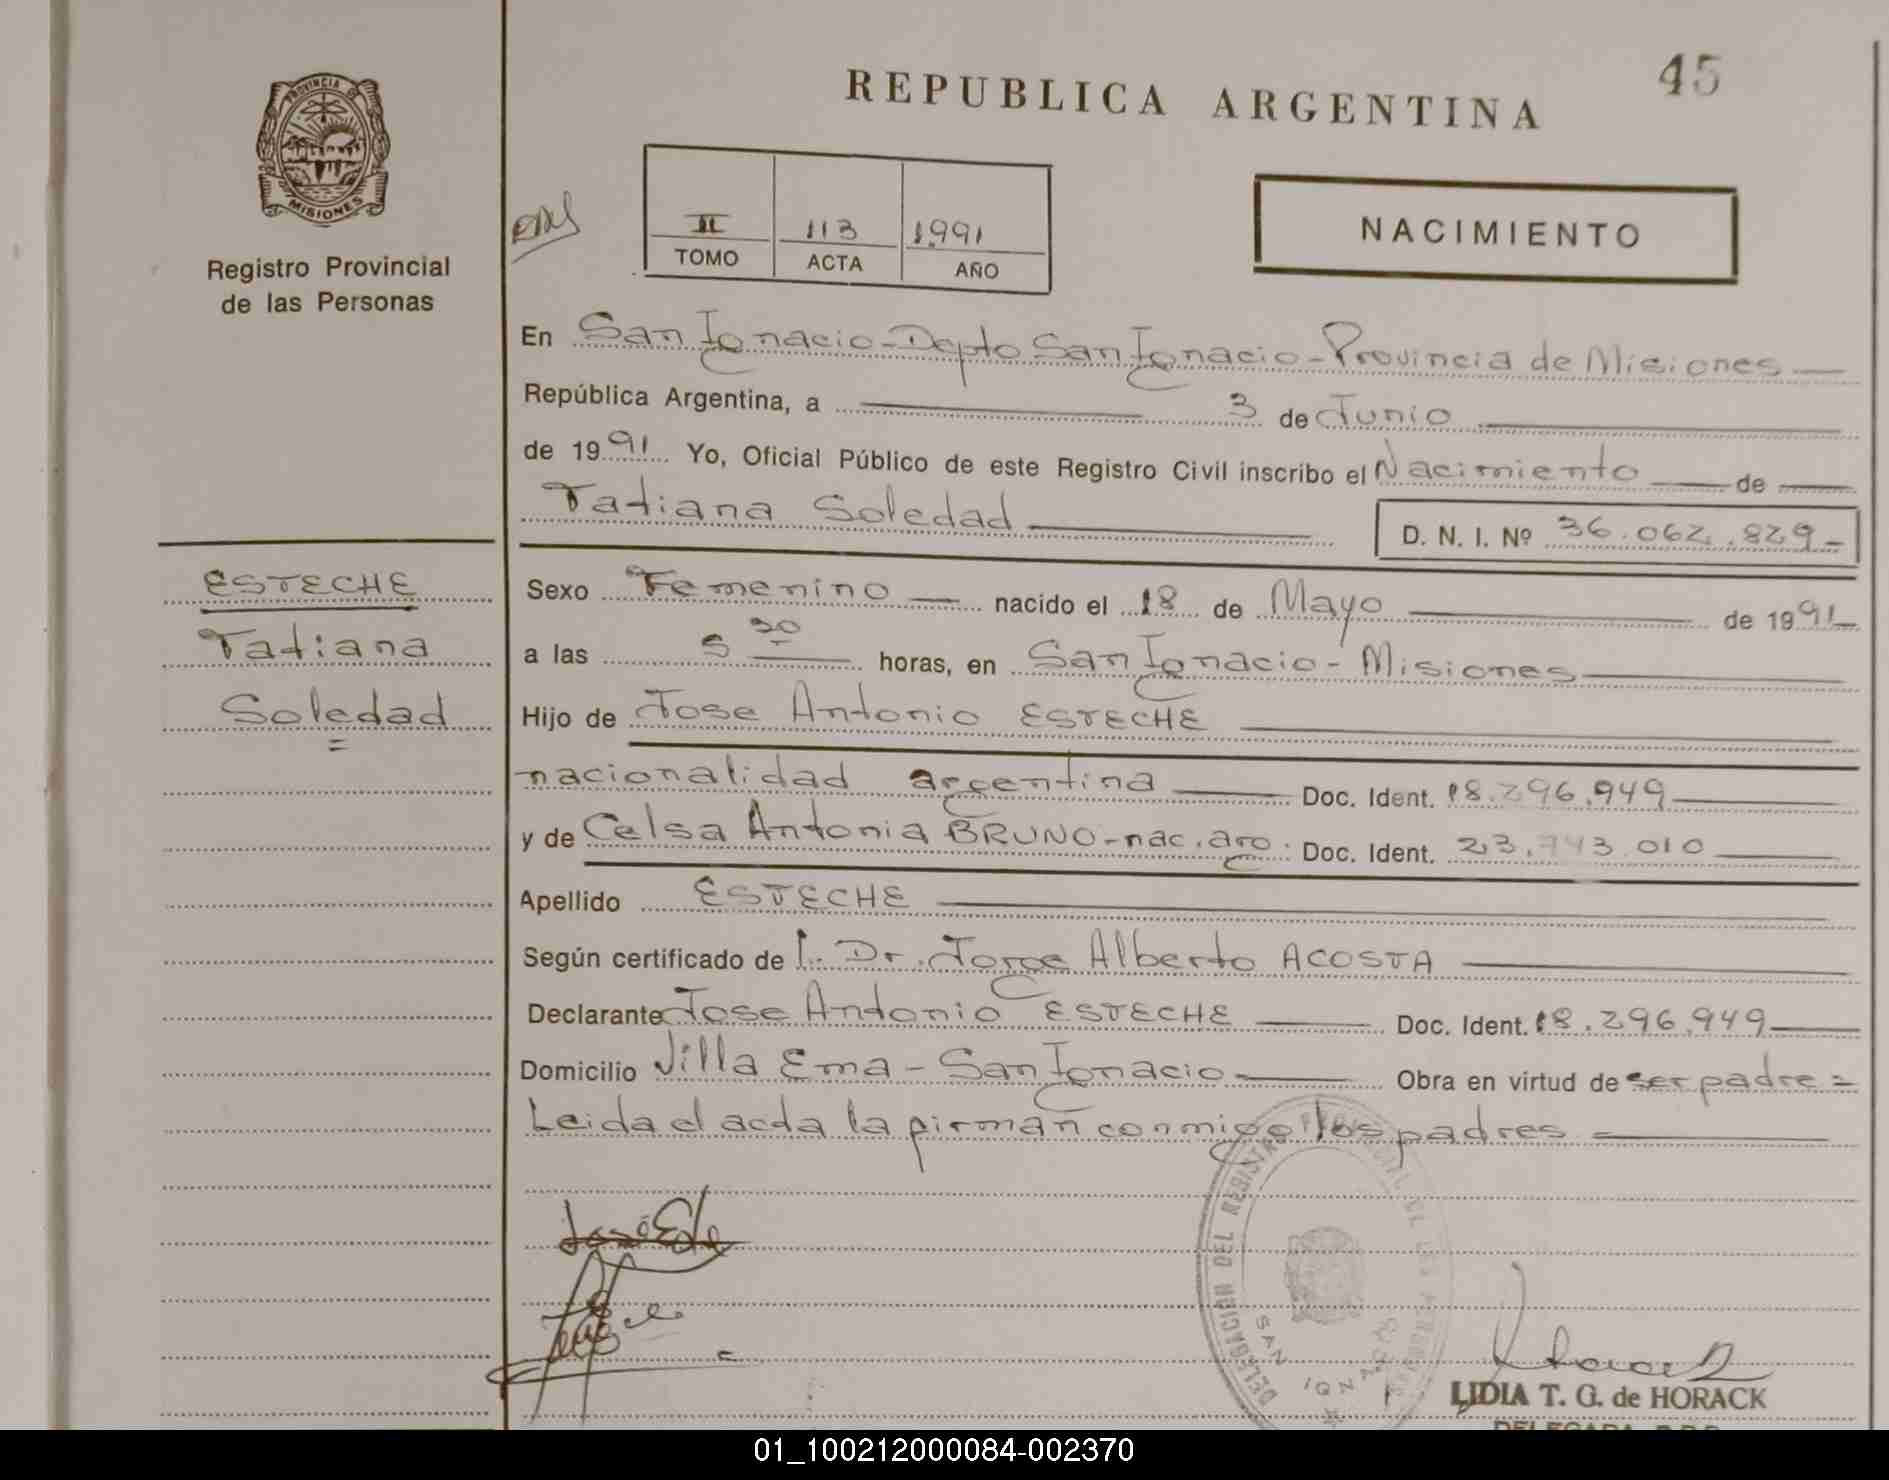 45
REPUBLICA ARGENTINA
PROVINCIA DE
MISIONES
Registro Provincial
de las Personas
II 113 1991
TOMO ACTA AÑO
NACIMIENTO
En San Ignacio - Depto San Ignacio - Provincia de Misiones
República Argentina, a 3 de Junio
de 1991 Yo, Oficial Público de este Registro Civil inscribo el Nacimiento de
Tatiana Soledad D. N. I. Nº 36.062.829
ESTECHE
Tatiana
Soledad
Sexo Femenino nacido el 18 de Mayo de 1991
a las 5 30 horas, en San Ignacio - Misiones
Hijo de Jose Antonio ESTECHE
nacionalidad argentina Doc. Ident. 18.296.949
y de Celsa Antonia BRUNO - nac. arg. Doc. Ident. 23.743.010
Apellido ESTECHE
Según certificado de l. Dr. Jorge Alberto ACOSTA
Declarante Jose Antonio ESTECHE Doc. Ident. 18.296.949
Domicilio Villa Ema - San Ignacio Obra en virtud de ser padre =
Leida el acta la firman conmigo los padres =
DELEGACION DEL REGISTRO PROVINCIAL DE LAS PERSONAS
SAN IGNACIO
LIDIA T. G. de HORACK
01_100212000084-002370